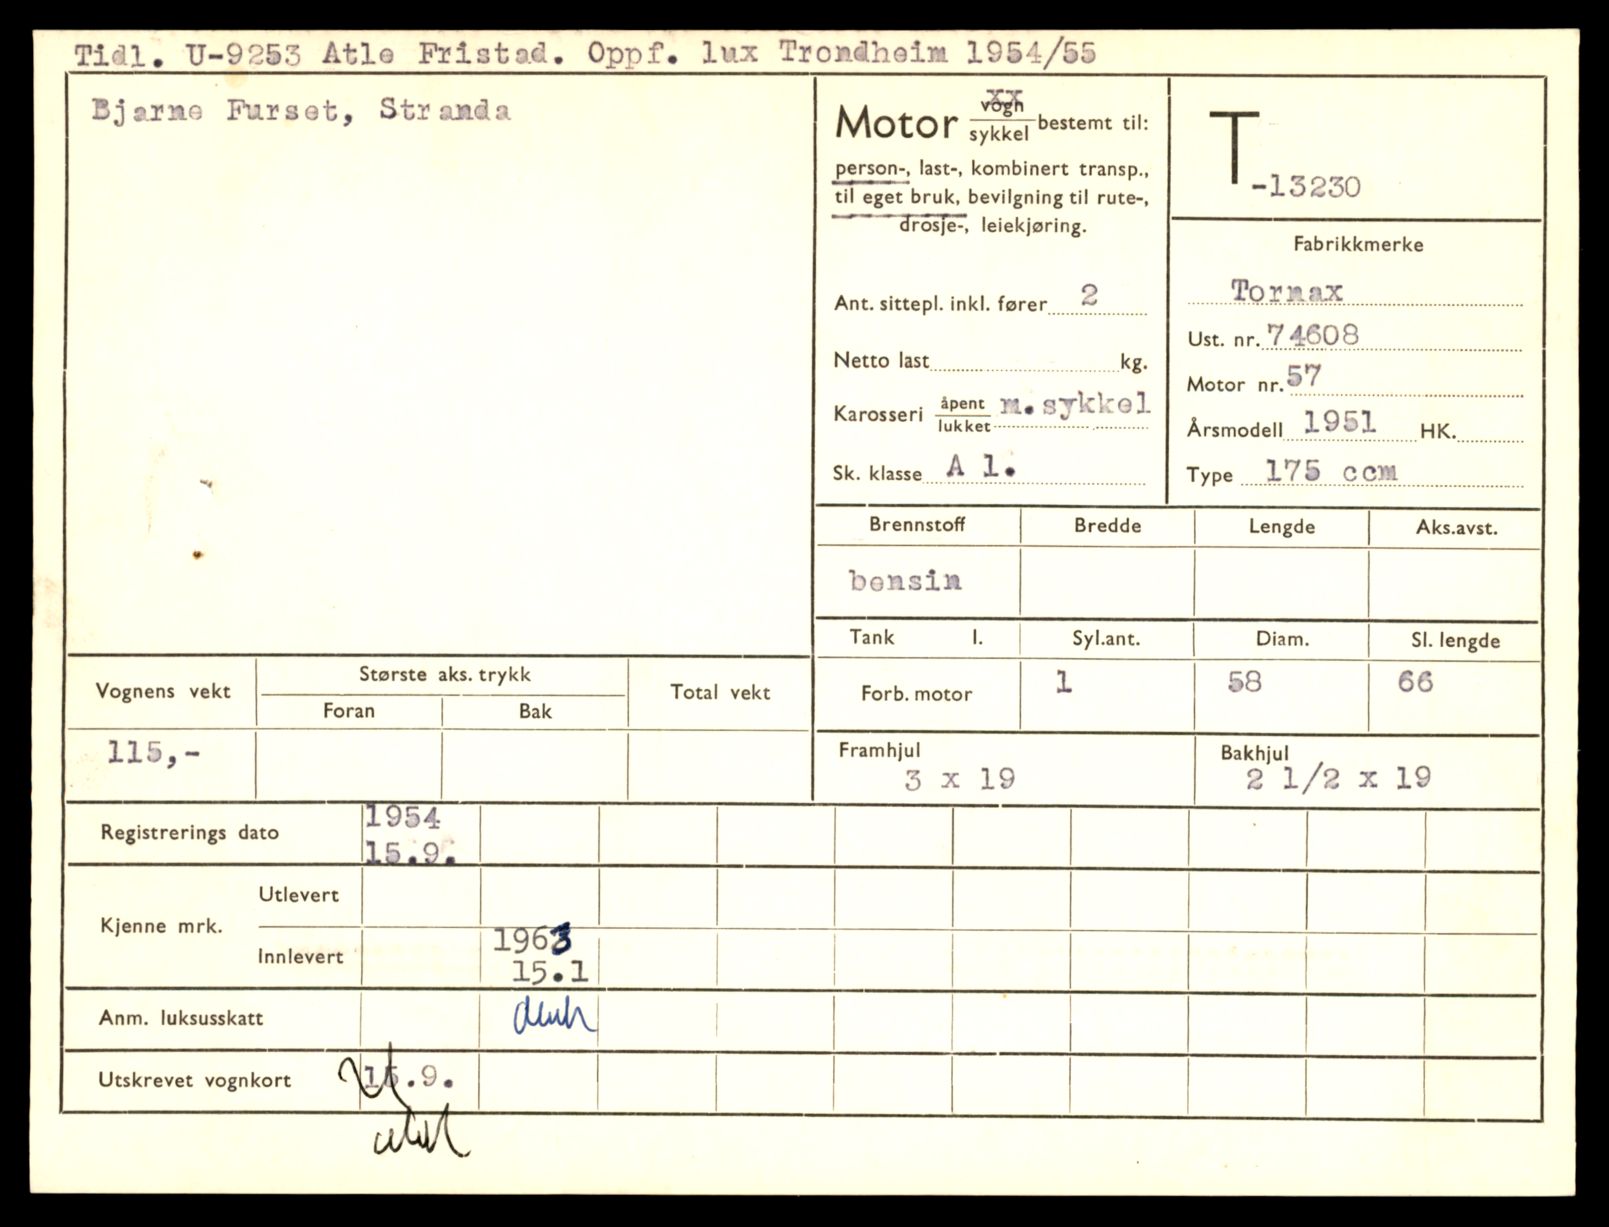 Tidl. U-9253 Atle Fristad. Oppf. lux Trondheim 1954/55
Bjarne Furset, Stranda
Motor vogn xx / sykkel bestemt til:
person-, last-, kombinert transp.,
til eget bruk, bevilgning til rute-,
drosje-, leiekjøring.
Ant. sittepl. inkl. fører 2
Netto last kg.
Karosseri åpent / lukket m.sykkel
Sk. klasse A 1.
T-13230
Fabrikkmerke
Tornax
Ust. nr. 74608
Motor nr. 57
Årsmodell 1951 HK.
Type 175 ccm
Brennstoff Bredde Lengde Aks.avst.
bensin
Tank l. Syl.ant. Diam. Sl. lengde
Forb. motor 1 58 66
Framhjul Bakhjul
3 x 19 2 1/2 x 19
Vognens vekt Største aks. trykk Total vekt
Foran Bak
115,-
Registrerings dato 1954
15.9.
Kjenne mrk. Utlevert
Innlevert 1963
15.1
Anm. luksusskatt
Utskrevet vognkort 15.9.